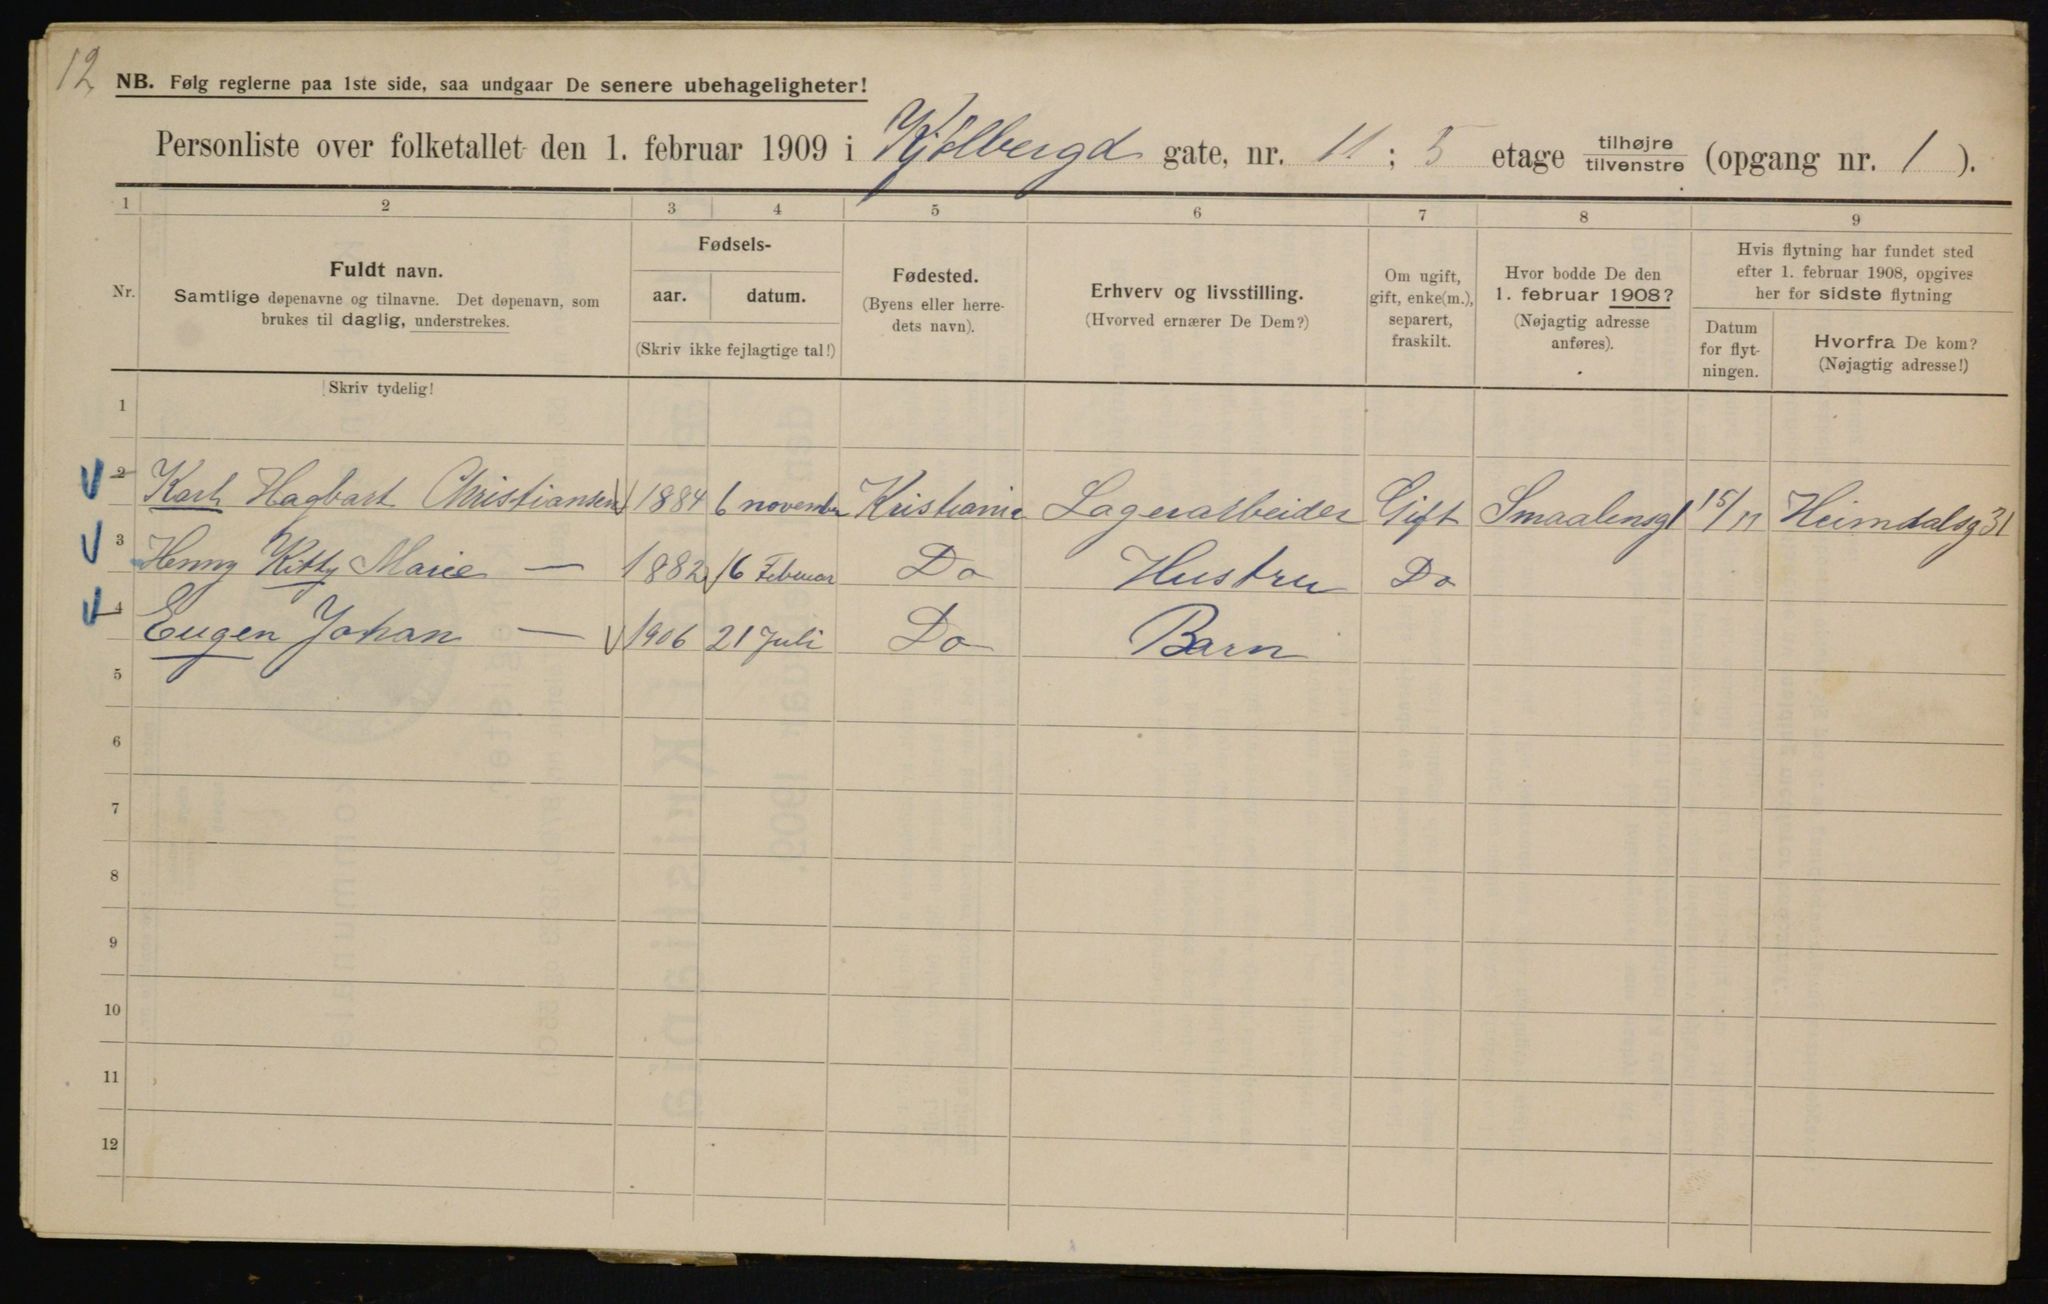 12
NB. Følg reglerne paa 1ste side, saa undgaar De senere ubehageligheter!
Personliste over folketallet den 1. februar 1909 i Kjølbergd gate, nr. 11 ; 5 etage tilhøjre tilvenstre (opgang nr. 1 ).
1 2 3 4 5 6 7 8 9
Nr.
Fuldt navn.
Samtlige døpenavne og tilnavne. Det døpenavn, som
brukes til daglig, understrekes.
Fødsels-
aar. datum.
(Skriv ikke fejlagtige tal!)
Fødested.
(Byens eller herre-
dets navn).
Erhverv og livsstilling.
(Hvorved ernærer De Dem?)
Om ugift,
gift, enke(m.),
separert,
fraskilt.
Hvor bodde De den
1. februar 1908?
(Nøjagtig adresse
anføres).
Hvis flytning har fundet sted
efter 1. februar 1908, opgives
her for sidste flytning
Datum
for flyt-
ningen.
Hvorfra De kom?
(Nøjagtig adresse!)
Skriv tydelig!
1
2 Karl Hagbart Christiansen 1884 6 november Kristiania Lagerarbeider Gift Smaalensg1 15/11 Heimdalsg 31
3 Henny Kitty Marie — 1882 16 Februar Do Hustru Do
4 Eugen Johan — 1906 21 Juli Do Barn
5
6
7
8
9
10
11
12